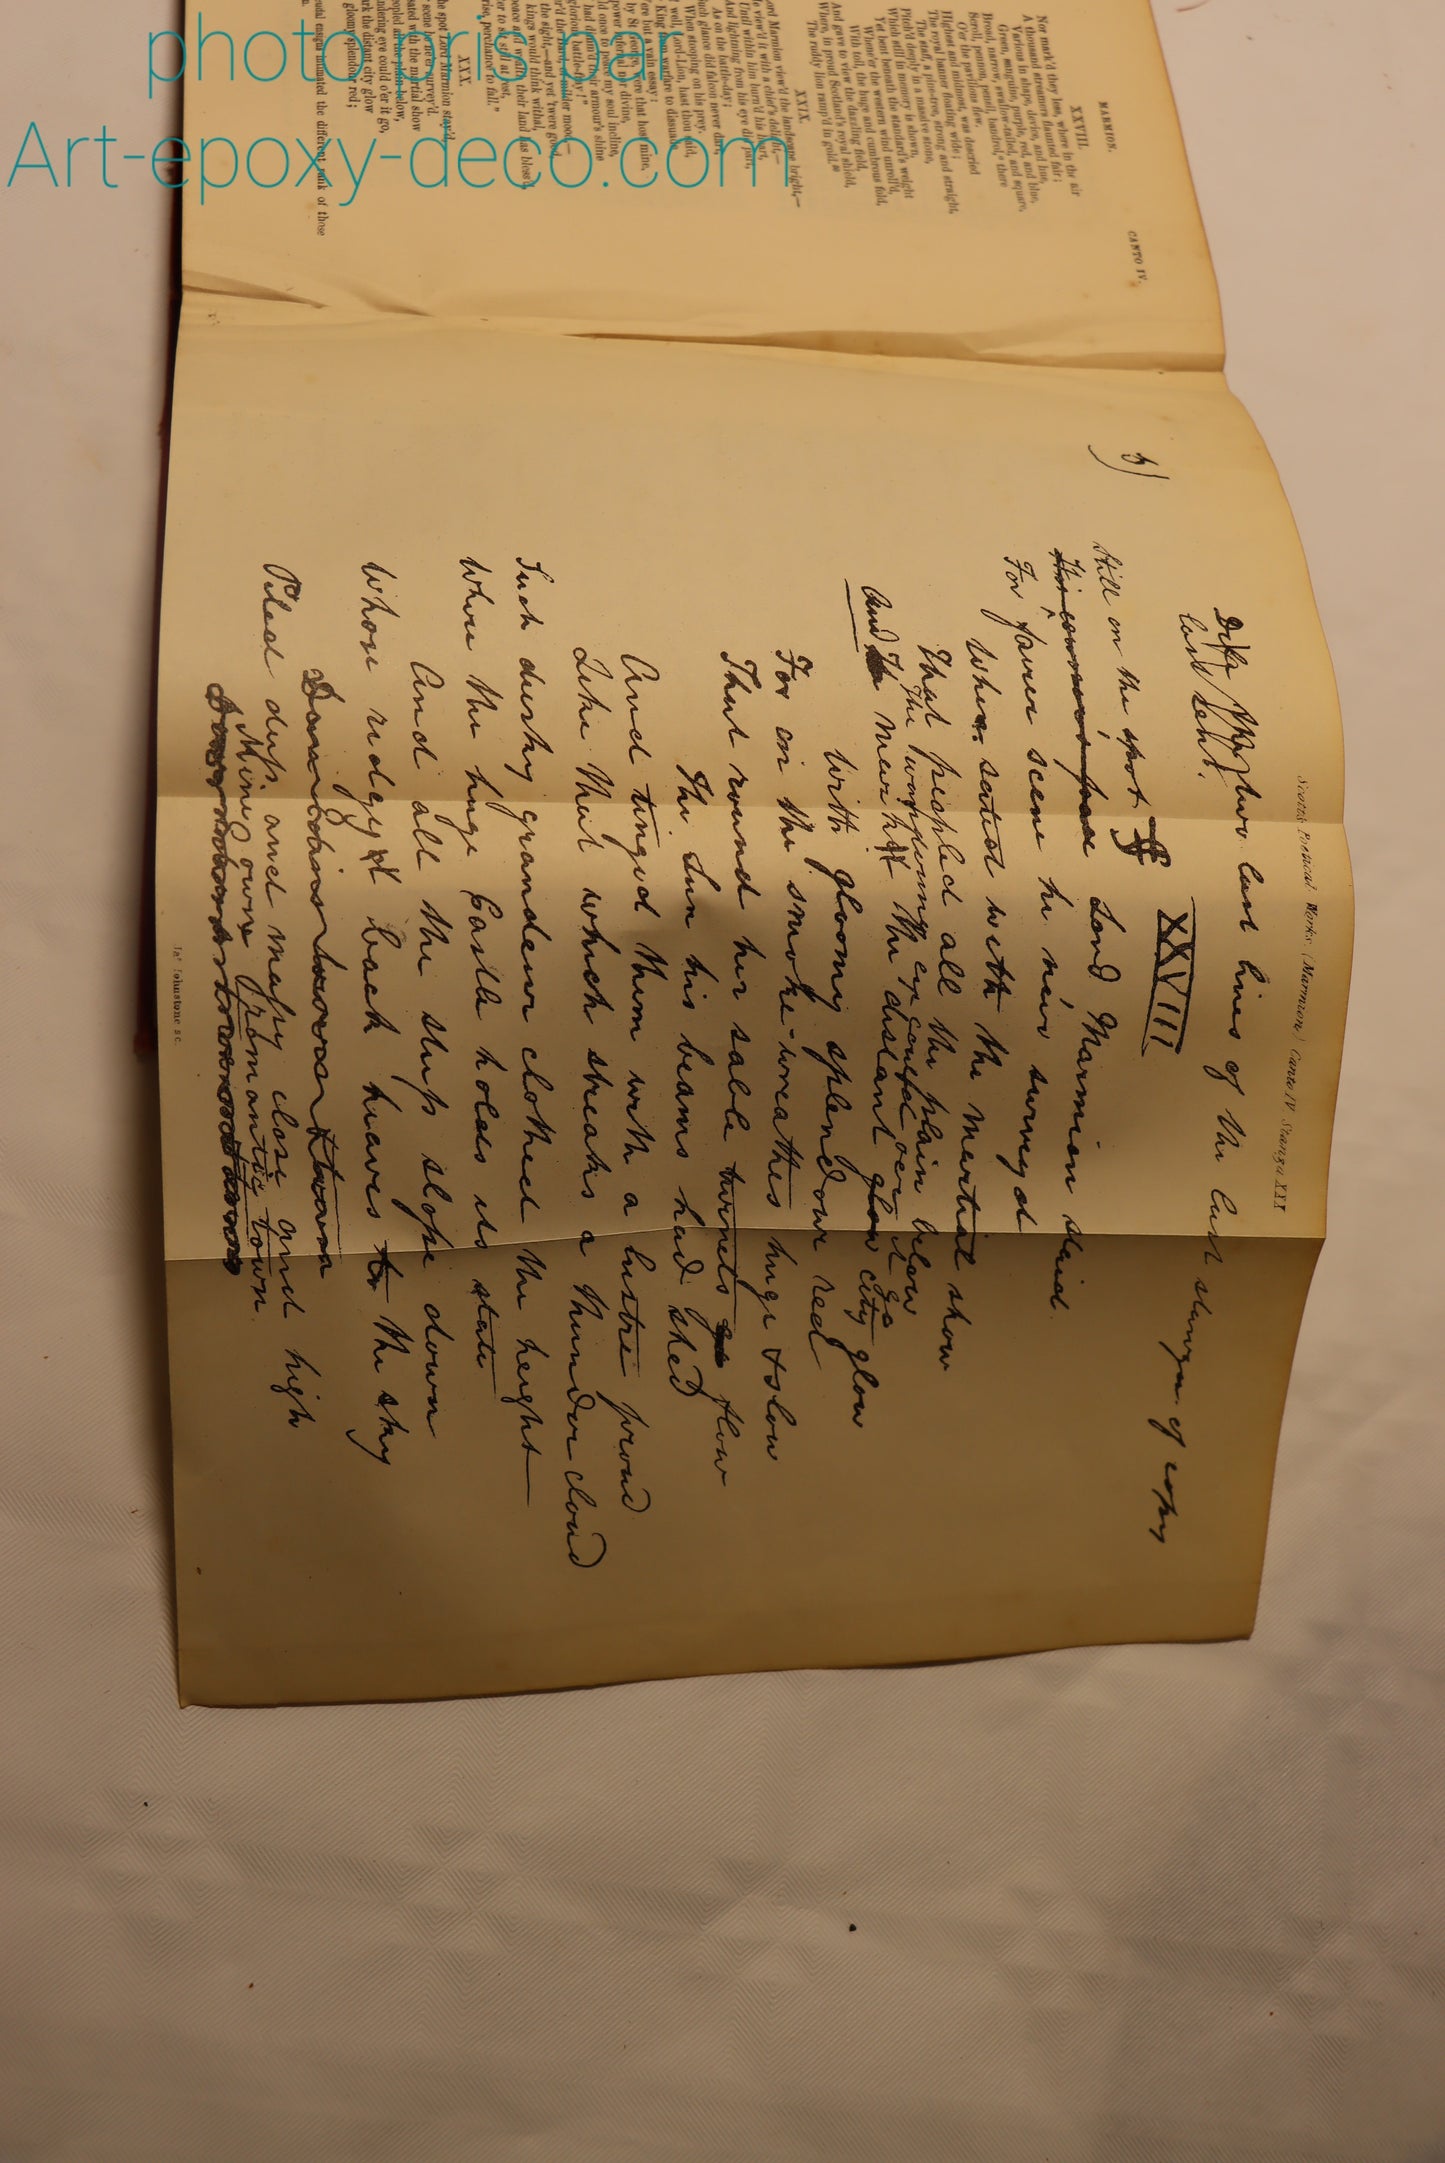 photo.crisp.ar
Art-epoxy-deco.com
MARMION.
CANTO IV.
XXVIII.
Nor mark'd they less, where in the air
A thousand streamers flaunted fair;
Various in shape, device, and hue,
Green, sanguine, purple, red, and blue,
Broad, narrow, swallow-tailed, and square,
Scroll, pennon, pensil, bandrol, there
O'er the pavilions flew.
Highest and midmost, was descried
The royal banner floating wide;
The staff, a pine-tree, strong and straight,
Pitch'd deeply in a massive stone,
Which still in memory is shown,
Yet bent beneath the standard's weight
Whene'er the western wind unroll'd,
With toil, the huge and cumbrous fold,
And gave to view the dazzling field,
Where, in proud Scotland's royal shield,
The ruddy lion ramp'd in gold.
XXIX.
Lord Marmion view'd the landscape bright,—
He view'd it with a chief's delight,—
Until within him burn'd his heart,
And lightning from his eye did part,
As on the battle-day;
Such glance did falcon never dart,
When stooping on his prey.
well, Lord-Lion, hast thou said,
King from warfare to dissuade
Were but a vain essay:
by St. George, were that host mine,
power infernal nor divine,
ld once to peace my soul incline,
had dimm'd their armour's shine
glorious battle-fray!"
r'd the Bard, of milder mood,—
the sight,—and yet 'twere good,
kings would think withal,
peace and wealth their land has bless'd,
er to sit still at rest,
rise, perchance to fall."
XXX.
he spot Lord Marmion stay'd,
scene he ne'er survey'd.
eated with the martial show
eopled all the plain below,
ndering eye could o'er it go,
rk the distant city glow
gloomy splendour red;
eudal ensigns intimated the different rank of those
Scotts Poetical Works. (Marmion) Canto IV. Stanza XXX
two last lines of the last stanza of copy
last sent.
5)
XXVIII
Still on the spot Lord Marmion staid
For fairer scene he neir surveyed
When sated with the martial show
That peopled all the plain below
The wandering eye could oer it go
And mark the distant city glow
With gloomy splendour red
For on the smoke-wreathes huge & slow
That round her sable turrets flow
The Sun his beams had shed
And tinged them with a lustre proud
Like that which streaks a thunder cloud
Such dusky grandeur clothed the height
Where the huge Castle holds its state
And all the steep slope down
Whose ridgy back heaves to the sky
Piled deep and massy close and high
Mine own romantic town.
Jas. Johnstone sc.